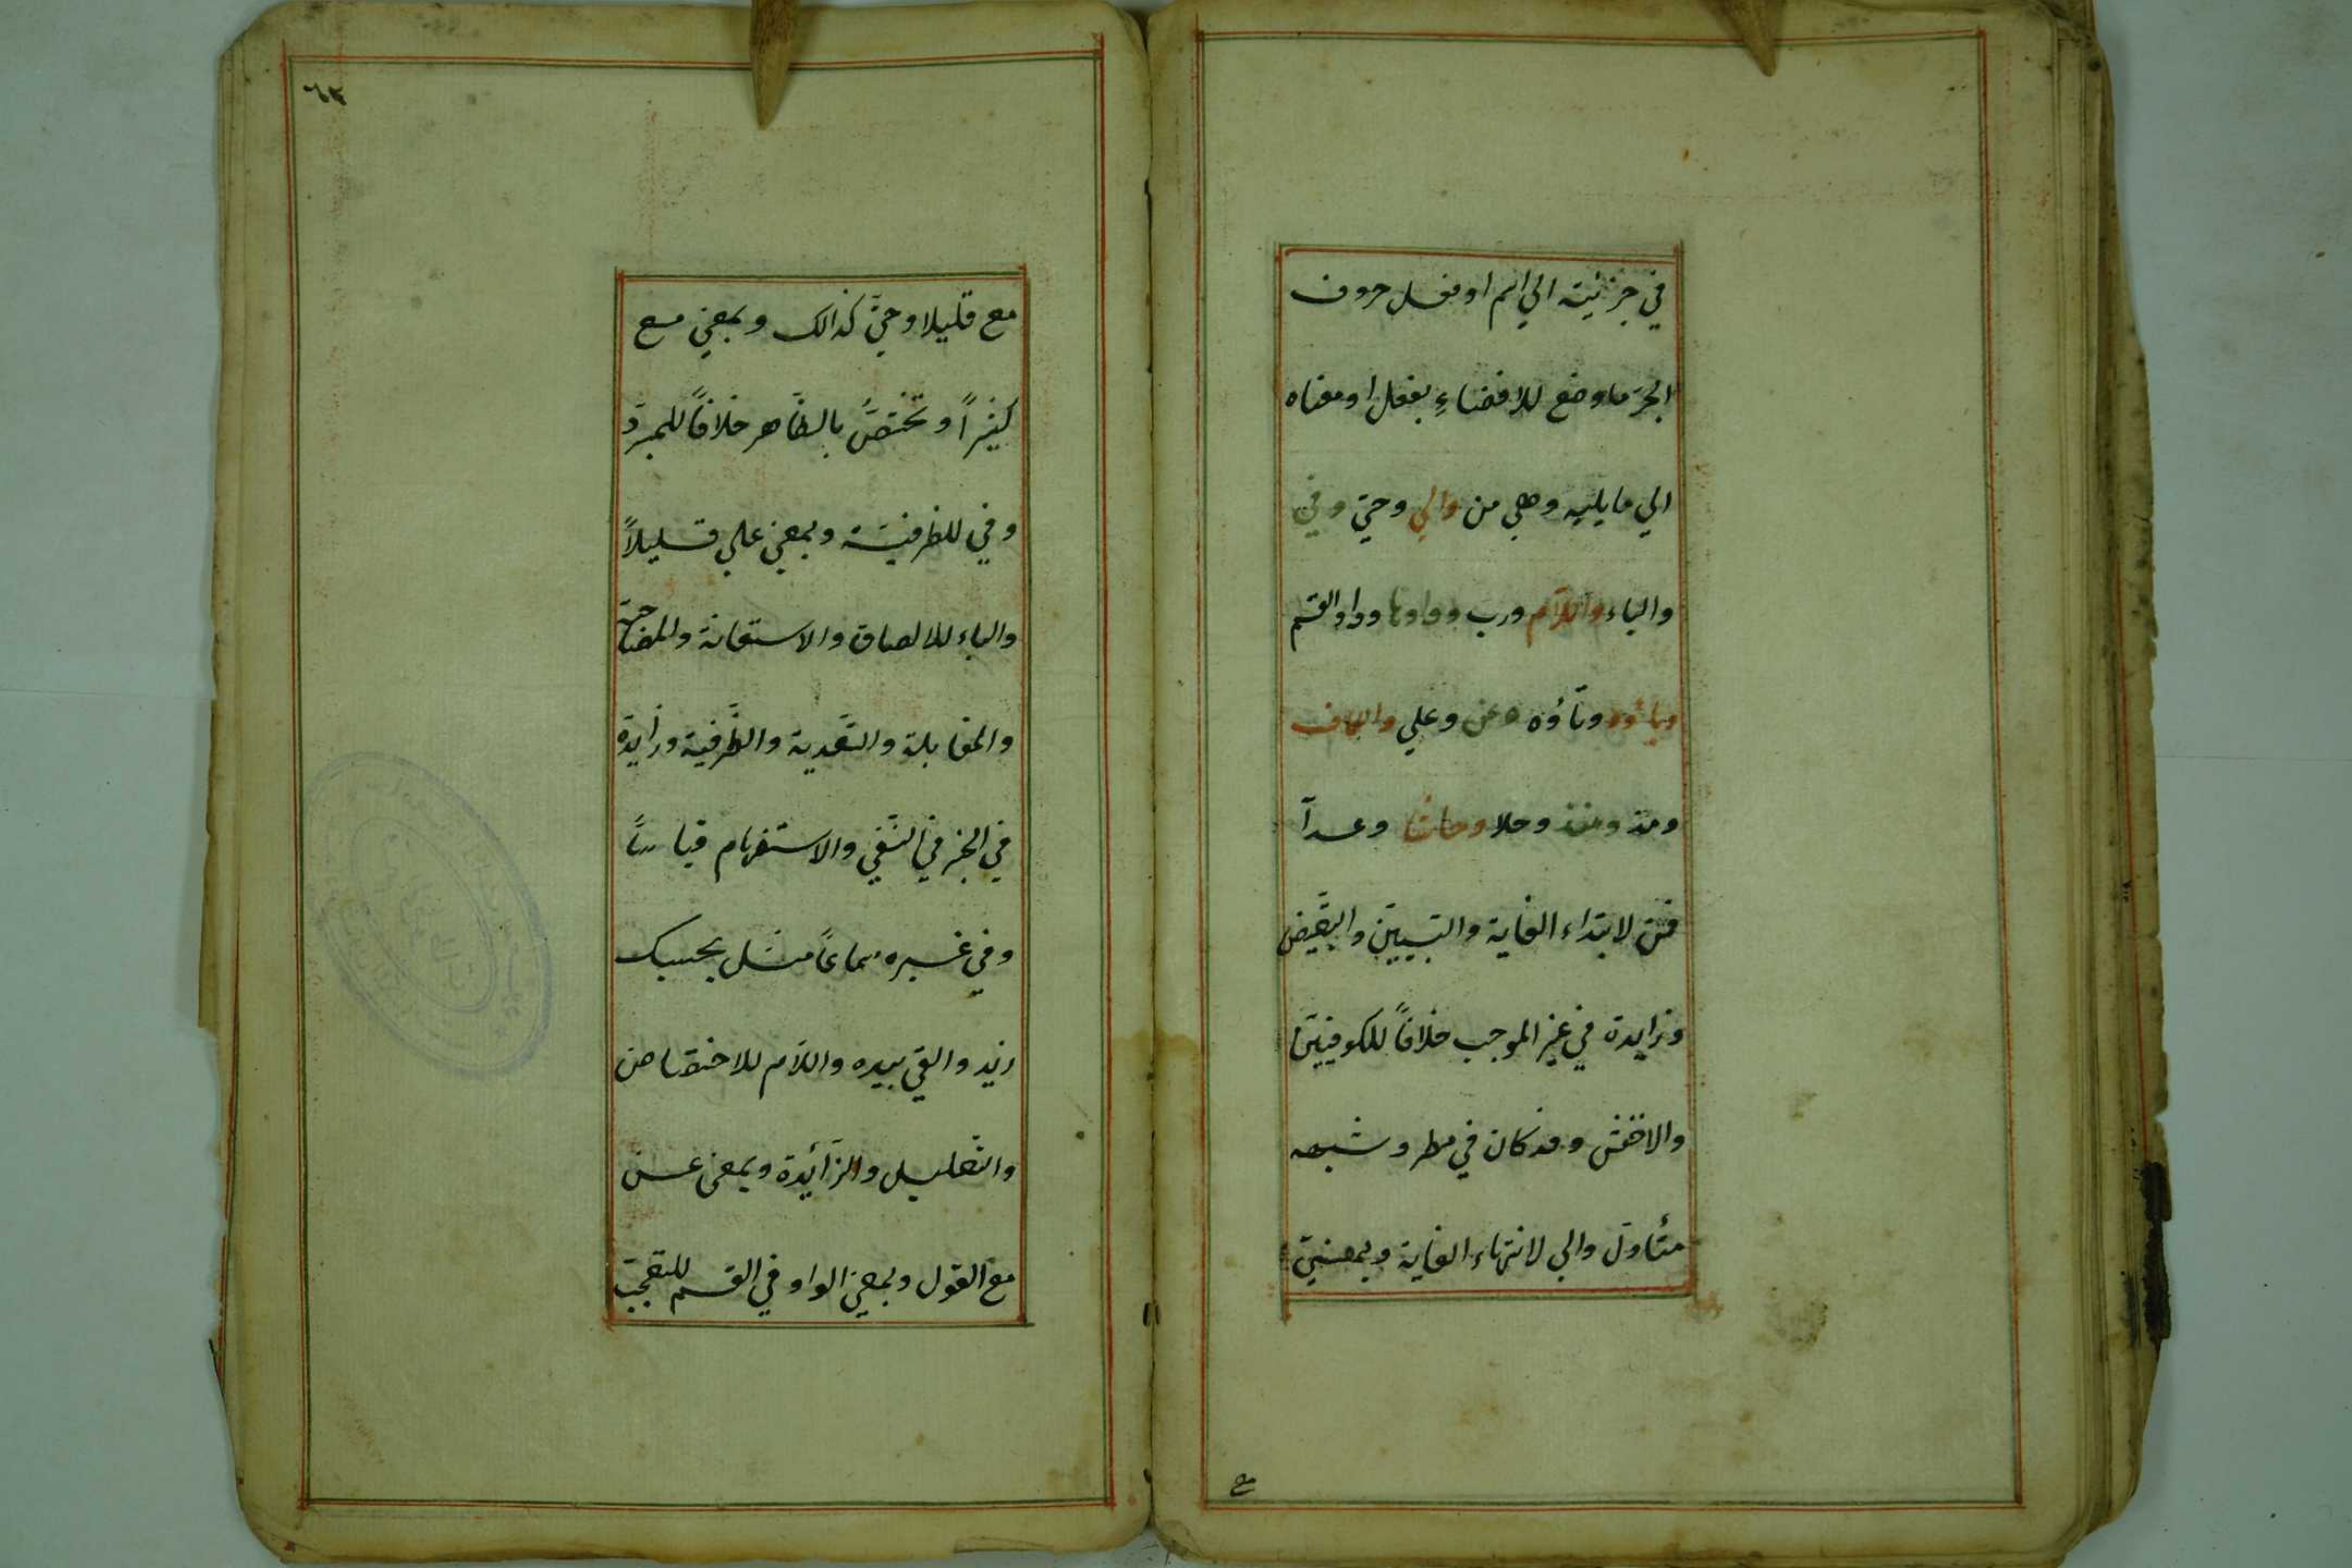 في جزئيته الي اسم او فعل حروف
الجر ما وضع للافضاءِ بفعل او معناه
الي ما يليه وهي من والي وحتي وفي
والباء واللام ورب وواوها وواو القسم
وبائوه وتاؤه وعن وعلي والكاف
ومذ ومنذ وخلا وحاشا وعدا
فمن لابتداء الغاية والتبيين والتبعيض
وزايدة في غير الموجب خلافاً للكوفيين
والاخفش وقد كان في مطر وشبهه
متأول والي لانتهاء الغاية وبمعني
مع
مع قليلا وحتي كذالك وبمعني مع
كثيراً وتختص بالظاهر خلافاً للمبرد
وفي للظرفية وبمعني علي قليلاً
والباء للالصاق والاستعانة والمصاحبة
والمقابلة والتعدية والظرفية وزايدة
في الخبر في النفي والاستفهام قياساً
وفي غيره سماعاً مثل بحسبك
زيد والقي بيده واللام للاختصاص
والتعليل والزائدة وبمعني عن
مع القول وبمعني الواو في القسم للتعجب